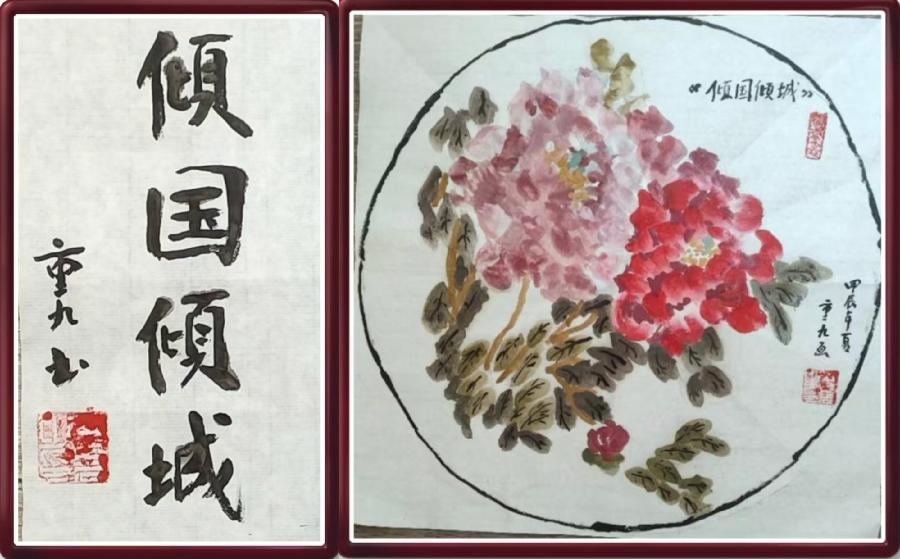 倾国倾城
重九书
《倾国倾城》
甲辰年夏
重九画